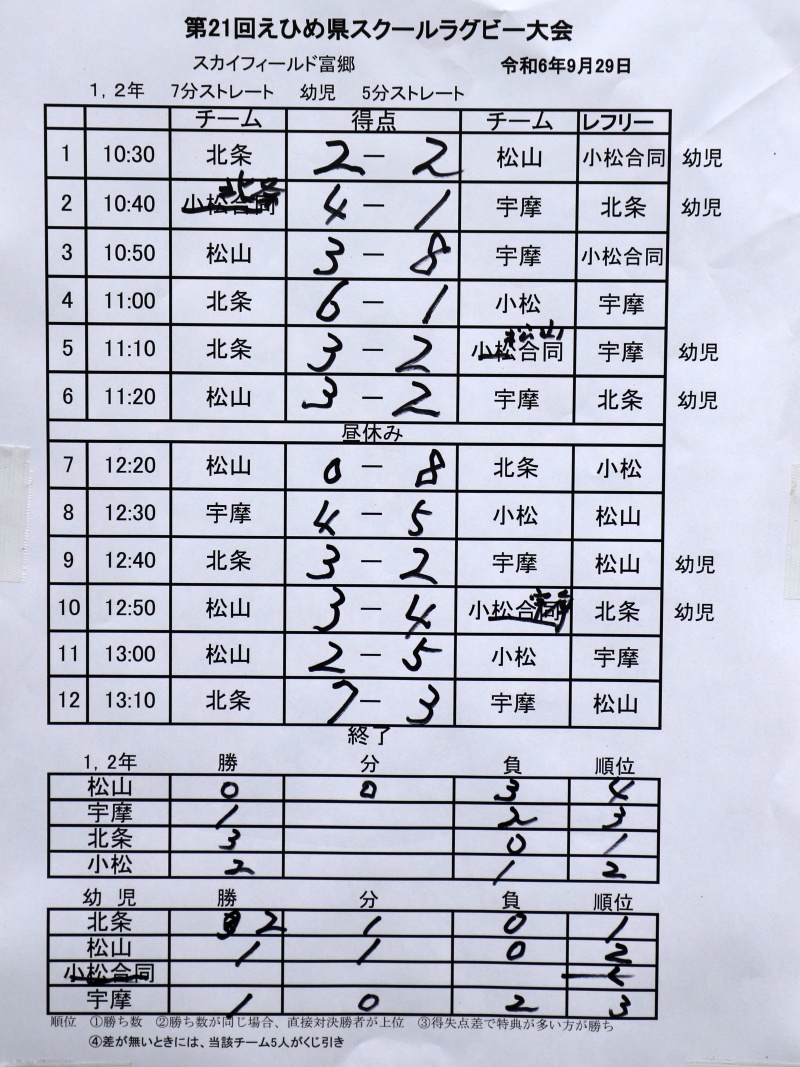 第21回えひめ県スクールラグビー大会
スカイフィールド富郷 令和6年9月29日
1，2年 7分ストレート 幼児 5分ストレート
チーム 得点 チーム レフリー
1 10:30 北条 2 － 2 松山 小松合同 幼児
2 10:40 小松合同 北条 4 － 1 宇摩 北条 幼児
3 10:50 松山 3 － 8 宇摩 小松合同
4 11:00 北条 6 － 1 小松 宇摩
5 11:10 北条 3 － 2 小松合同 松山 宇摩 幼児
6 11:20 松山 3 － 2 宇摩 北条 幼児
昼休み
7 12:20 松山 0 － 8 北条 小松
8 12:30 宇摩 4 － 5 小松 松山
9 12:40 北条 3 － 2 宇摩 松山 幼児
10 12:50 松山 3 － 4 小松合同 北条 幼児
11 13:00 松山 2 － 5 小松 宇摩
12 13:10 北条 7 － 3 宇摩 松山
終了
1，2年 勝 分 負 順位
松山 0 0 3 4
宇摩 1 2 3
北条 3 0 1
小松 2 1 2
幼 児 勝 分 負 順位
北条 2 1 0 1
松山 1 1 0 2
小松合同
宇摩 1 0 2 3
順位 ①勝ち数 ②勝ち数が同じ場合、直接対決勝者が上位 ③得失点差で特典が多い方が勝ち
④差が無いときには、当該チーム5人がくじ引き